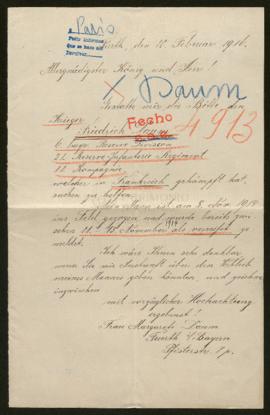 a París
Pedir informes
que se hace alli
Devolver
Fürth, den 12. Februar 1916.
Allergnädigster König und Herr!
Daum
Gestatte mir die Bitte, den
Krieger
Friedrich Daum
Hecho
4913
6. Bayr. Reserve Division
21. Reserve-Infanterie Regiment
12. Kompagnie
welcher in Frankreich gekämpft hat,
suchen zu helfen.
Mein Mann ist am 8. Nov. 1914
ins Feld gezogen und wurde bereits zwi-
schen 11. 15 November als vermißt ge
1914
meldet.
Ich wäre Ihnen sehr dankbar
wenn Sie mir Auskunft über den
meines Mannes geben könnten, und zeichne
inzwischen
mit vorzüglicher Hochachtung
ergebenst!
Frau Margarete Daum
Fuerth i/Bayern
Pfisterstr. 7 p.